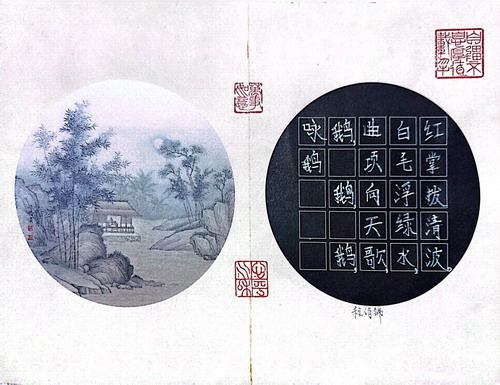 咏鹅
鹅,鹅,鹅,
曲项向天歌,
白毛浮绿水,
红掌拨清波。